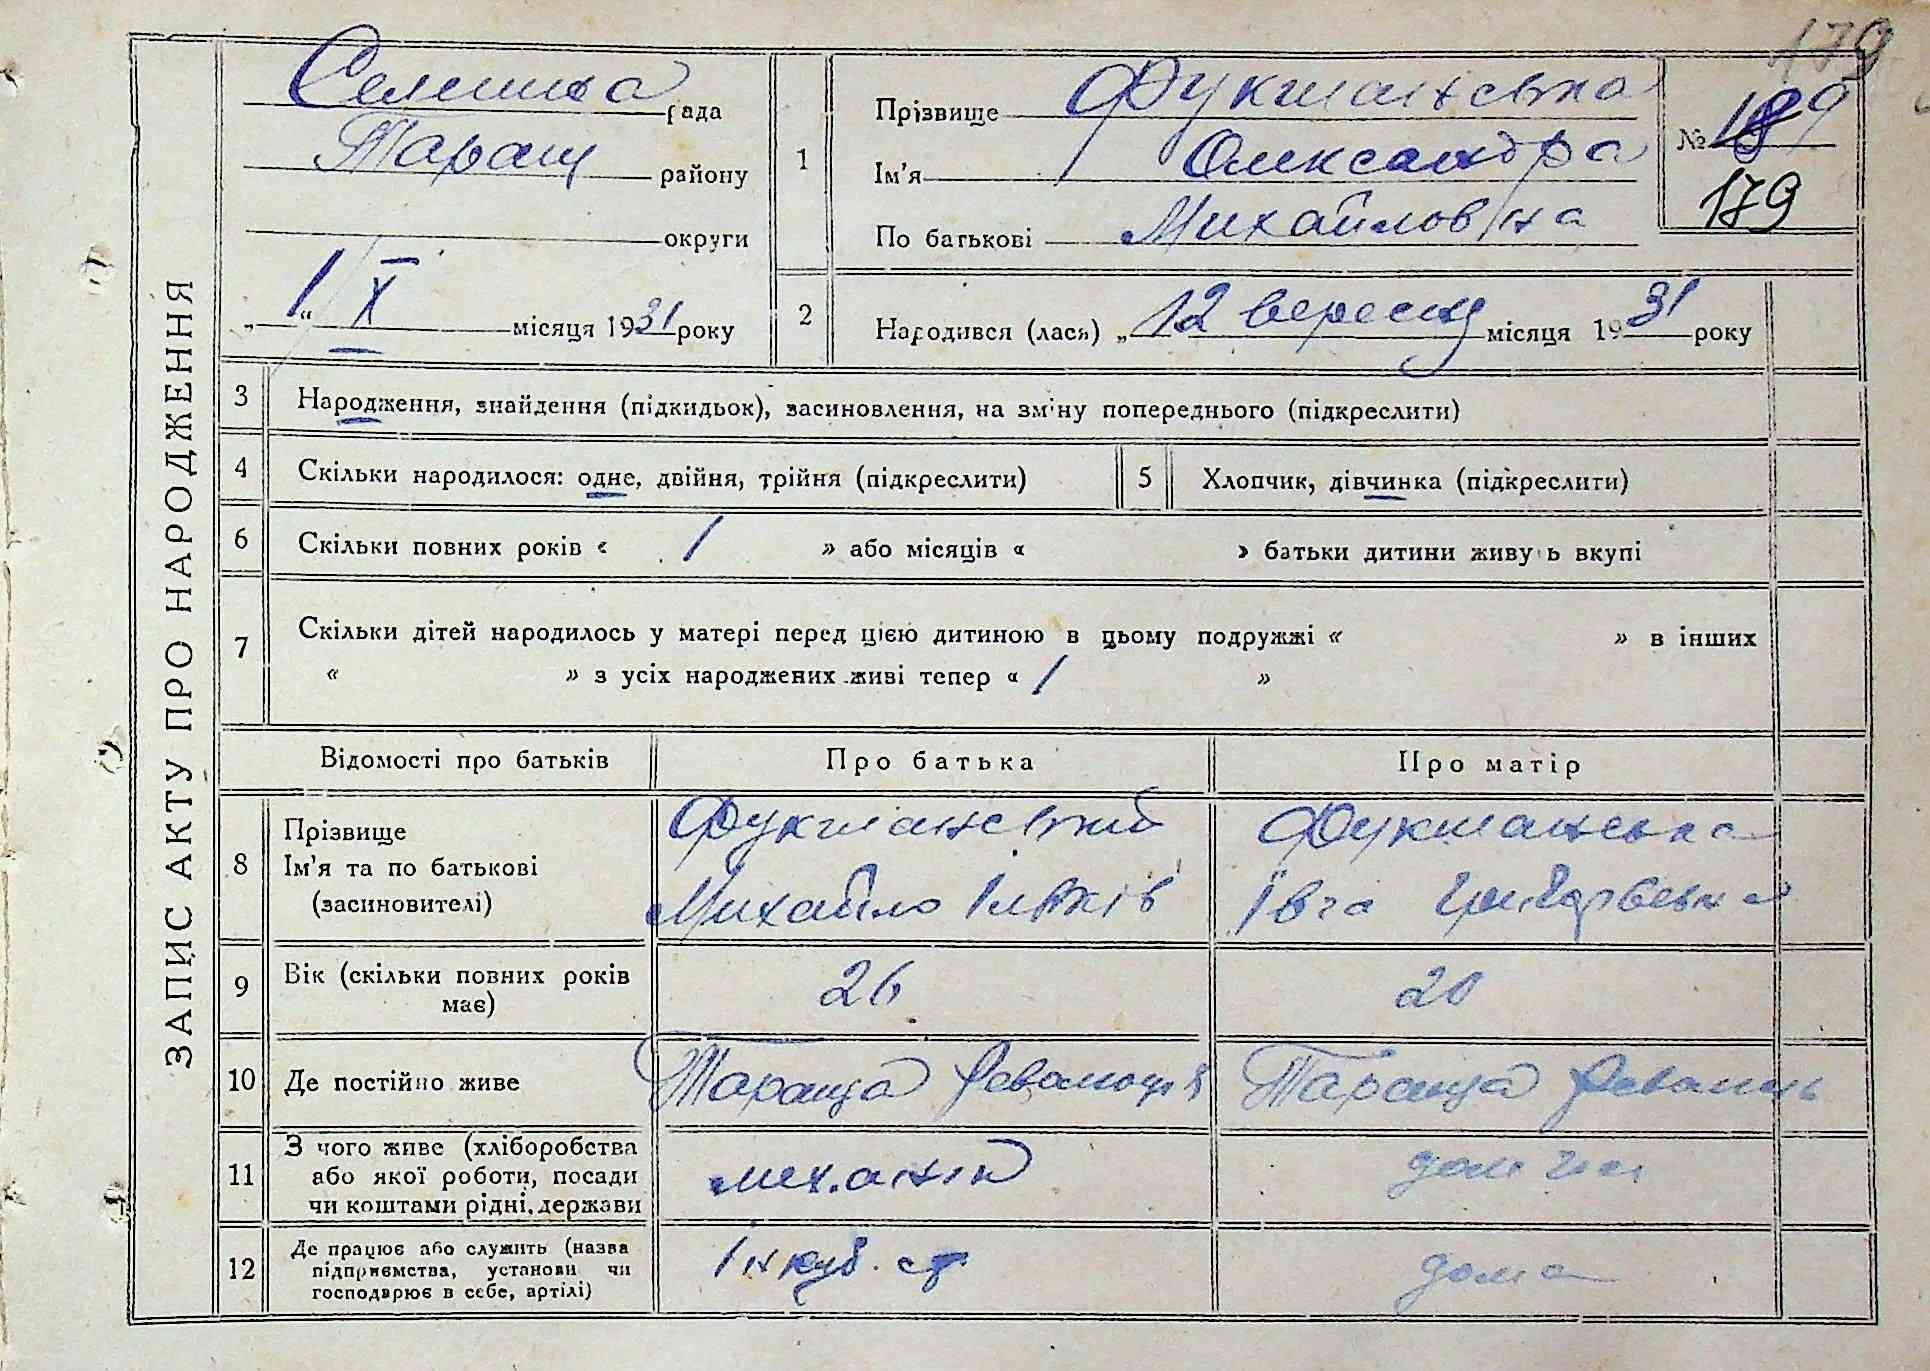 179
ЗАПИС АКТУ ПРО НАРОДЖЕННЯ
Селищна рада
Таращ району
округи
„1“ X місяця 1931 року
1
Прізвище Фукшанська
Ім'я Олександра
По батькові Михайловна
№ 189
179
2
Народився (лася) „12 вересня місяця 1931 року
3 Народження, знайдення (підкидьок), засиновлення, на зміну попереднього (підкреслити)
4 Скільки народилося: одне, двійня, трійня (підкреслити)
5 Хлопчик, дівчинка (підкреслити)
6 Скільки повних років « 1 » або місяців « » батьки дитини живуть вкупі
7 Скільки дітей народилось у матері перед цією дитиною в цьому подружжі « » в інших
« » з усіх народжених живі тепер « 1 »
Відомості про батьків Про батька Про матір
8 Прізвище
Ім'я та по батькові
(засиновителі)
Фукшанський
Михайло
Фукшанська
Івга
9 Вік (скільки повних років
має)
26 20
10 Де постійно живе Тараща Тараща
11 З чого живе (хліборобства
або якої роботи, посади
чи коштами рідні, держави
механік
12 Де працює або служить (назва
підприємства, установи чи
господарює в себе, артілі)
Інкуб. ст
дома